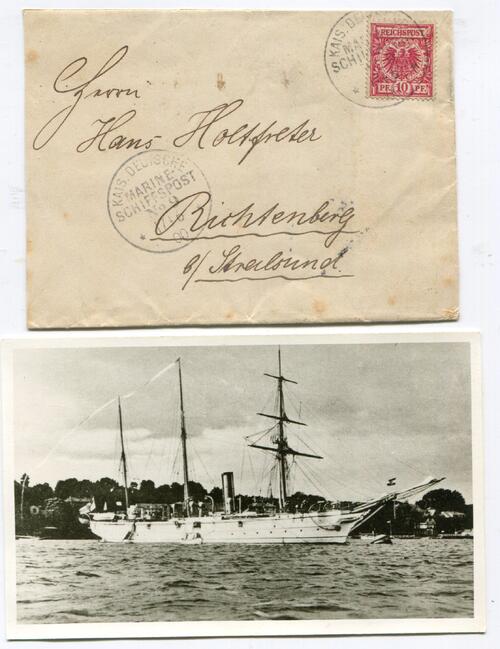 KAIS. DEUTSCHE
MA
SCHIFF
REICHSPOST
PF. 10 PF.
Herrn
Hans Holtfreter
KAIS. DEUTSCHE
MARINE-
SCHIFFSPOST
No 9
00
Richtenberg
b/ Stralsund.